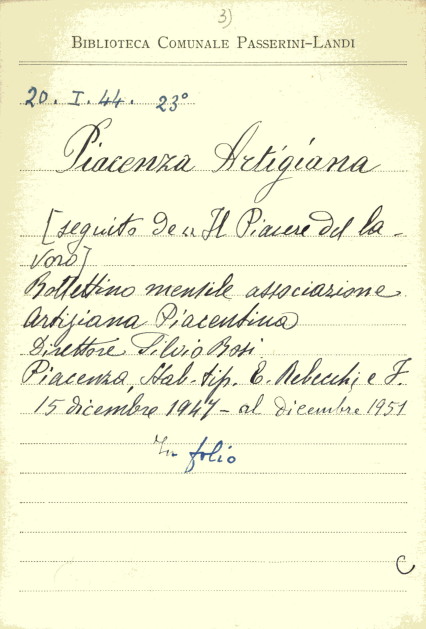 3)
BIBLIOTECA COMUNALE PASSERINI-LANDI
20. I. 44. 23°
Piacenza Artigiana
[seguito de « Il Piacere del la-
voro]
Bollettino mensile associazione
Artigiana Piacentina
Direttore Silvio Bosi
Piacenza, Stab. tip. C. Rebecchi e F.
15 dicembre 1947 - al dicembre 1951
In folio
C